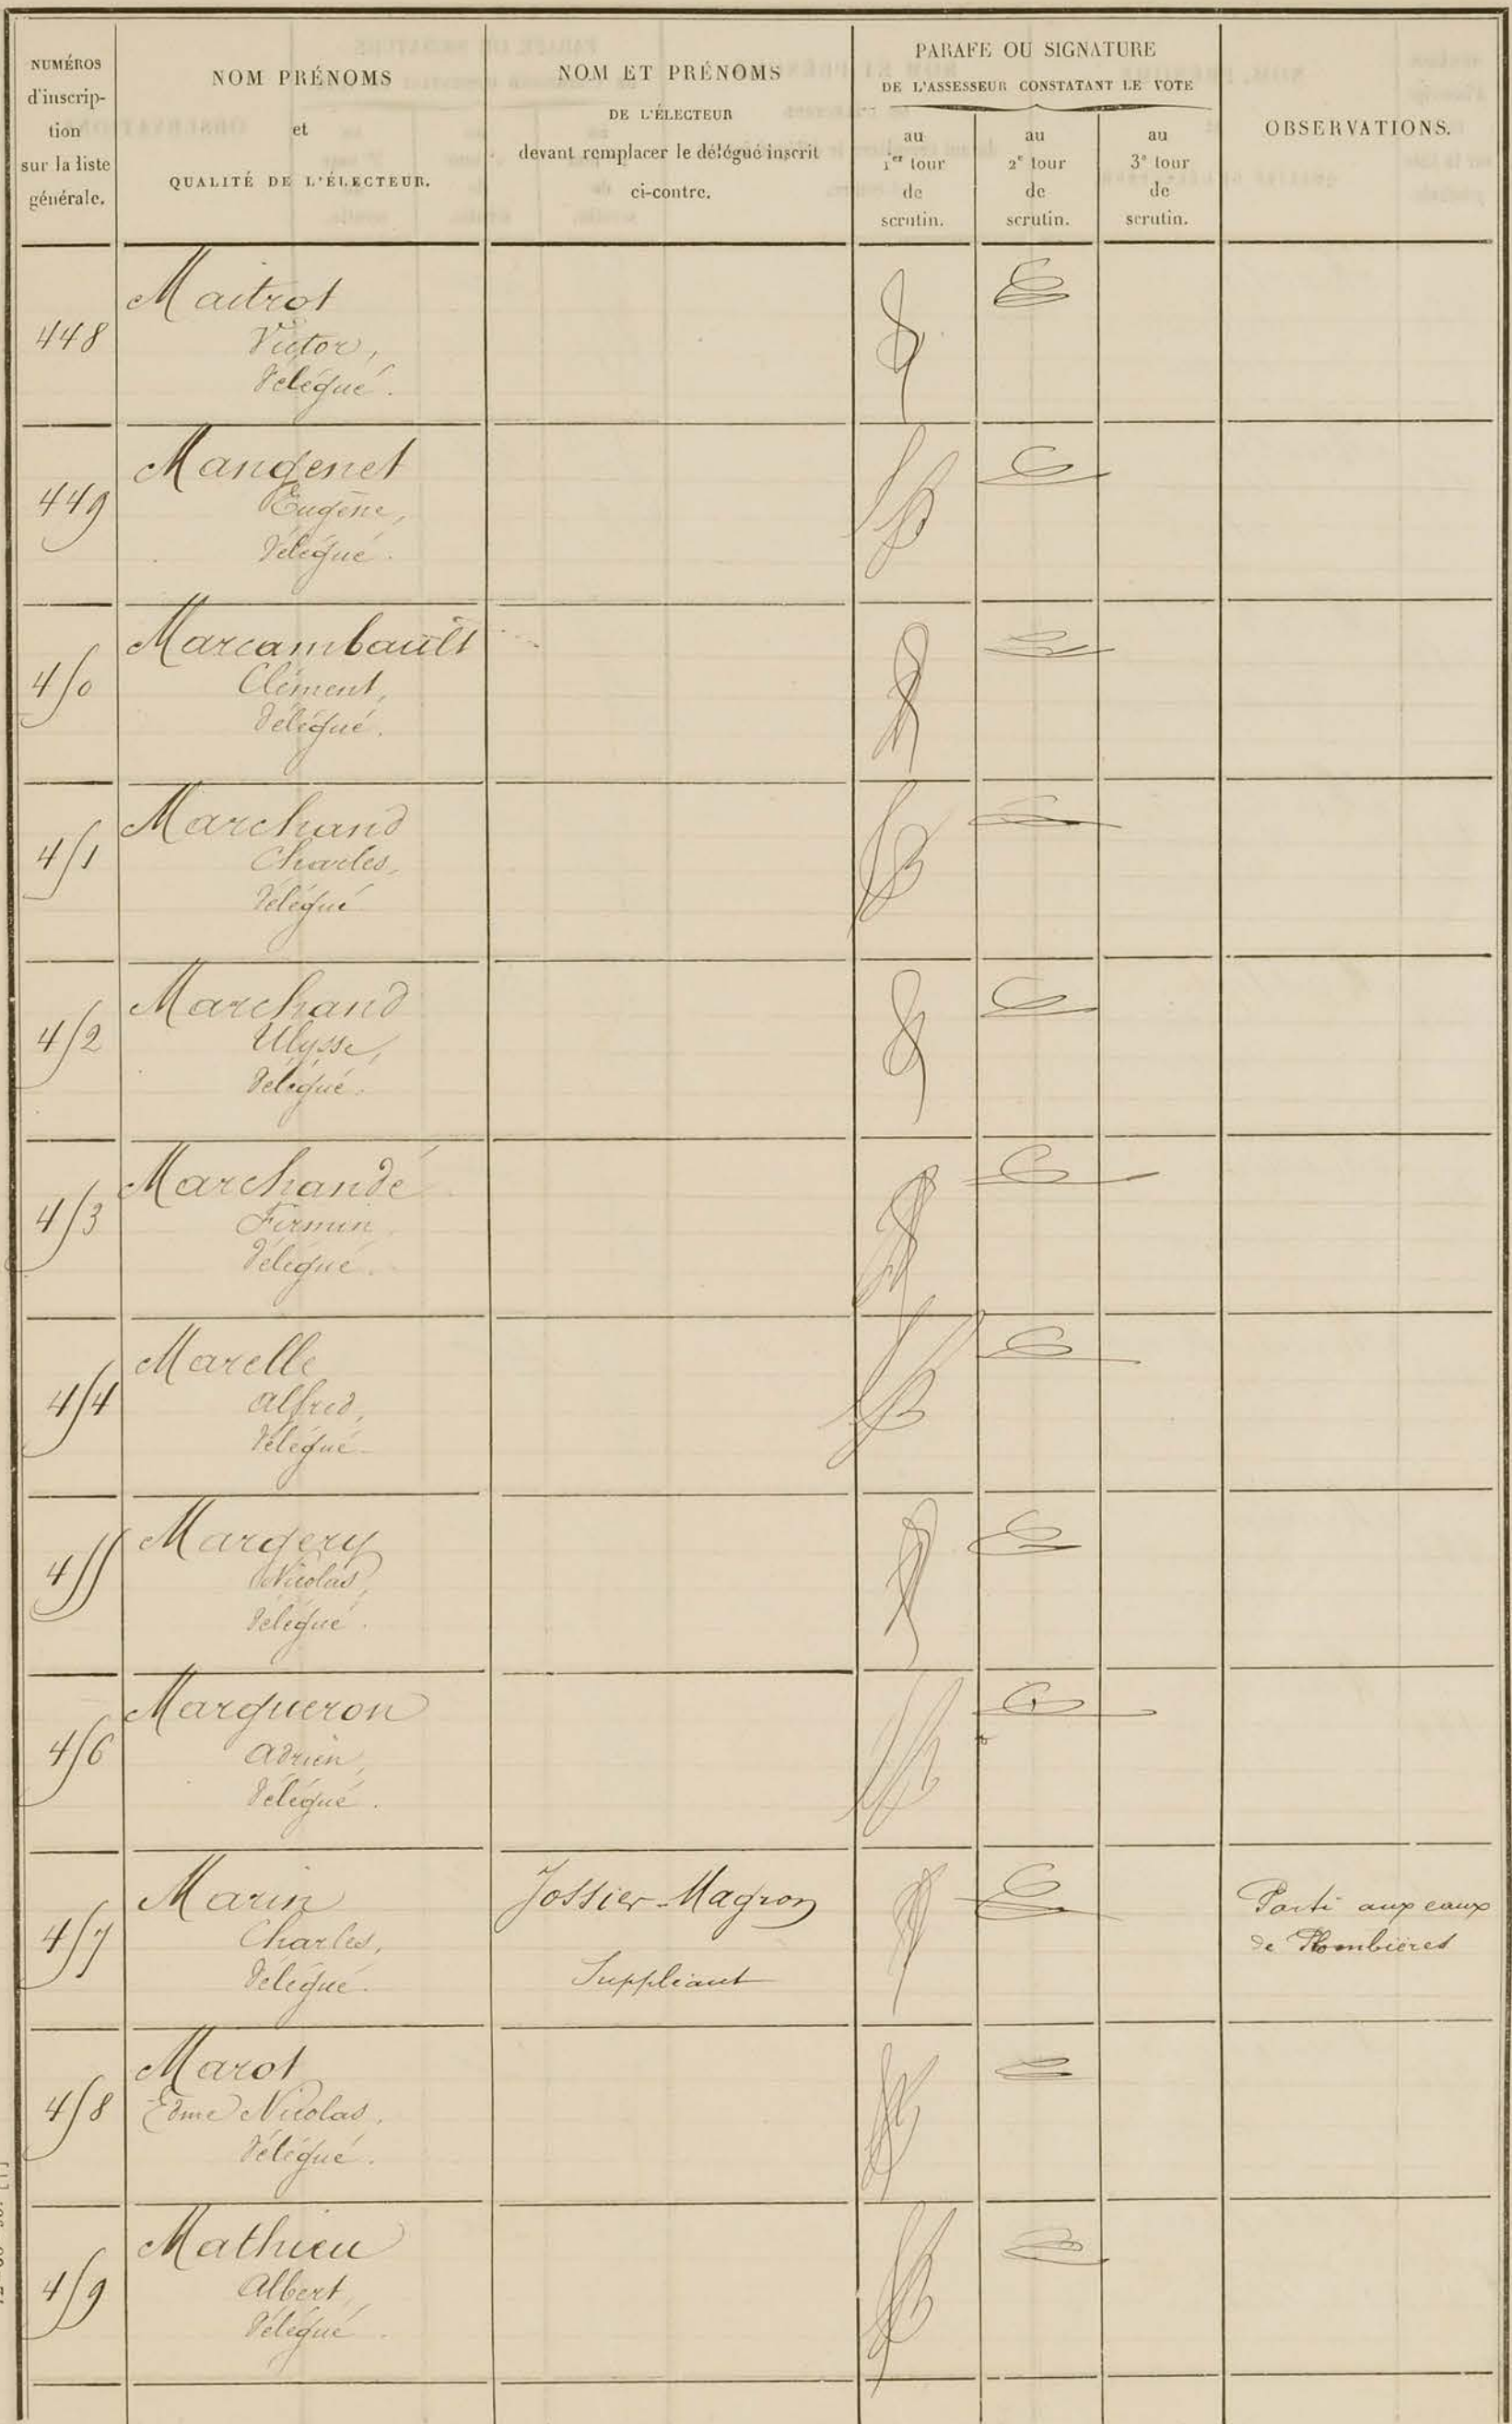 NUMÉROS
d'inscrip-
tion
sur la liste
générale.
NOM PRÉNOMS
et
QUALITÉ DE L'ÉLECTEUR.
NOM ET PRÉNOMS
DE L'ÉLECTEUR
devant remplacer le délégué inscrit
ci-contre.
PARAFE OU SIGNATURE
DE L'ASSESSEUR CONSTATANT LE VOTE
au
1er tour
de
scrutin.
au
2e tour
de
scrutin.
au
3e tour
de
scrutin.
OBSERVATIONS.
448
Maitrot
Victor,
Délégué.
449
Mangenet
Eugène,
Délégué.
450
Marcambault
Clément,
Délégué.
451
Marchand
Charles,
Délégué
452
Marchand
Ulysse,
Délégué.
453
Marchandé
Firmin
Délégué.
454
Marelle
Alfred,
Délégué
455
Margery
Nicolas,
Délégué.
456
Margueron
Adrien,
Délégué.
457
Marin
Charles,
Délégué.
Jossier-Magron
Suppléant
Parti aux eaux
de Plombières
458
Marot
Edme Nicolas,
Délégué.
459
Mathieu
Albert,
Délégué.